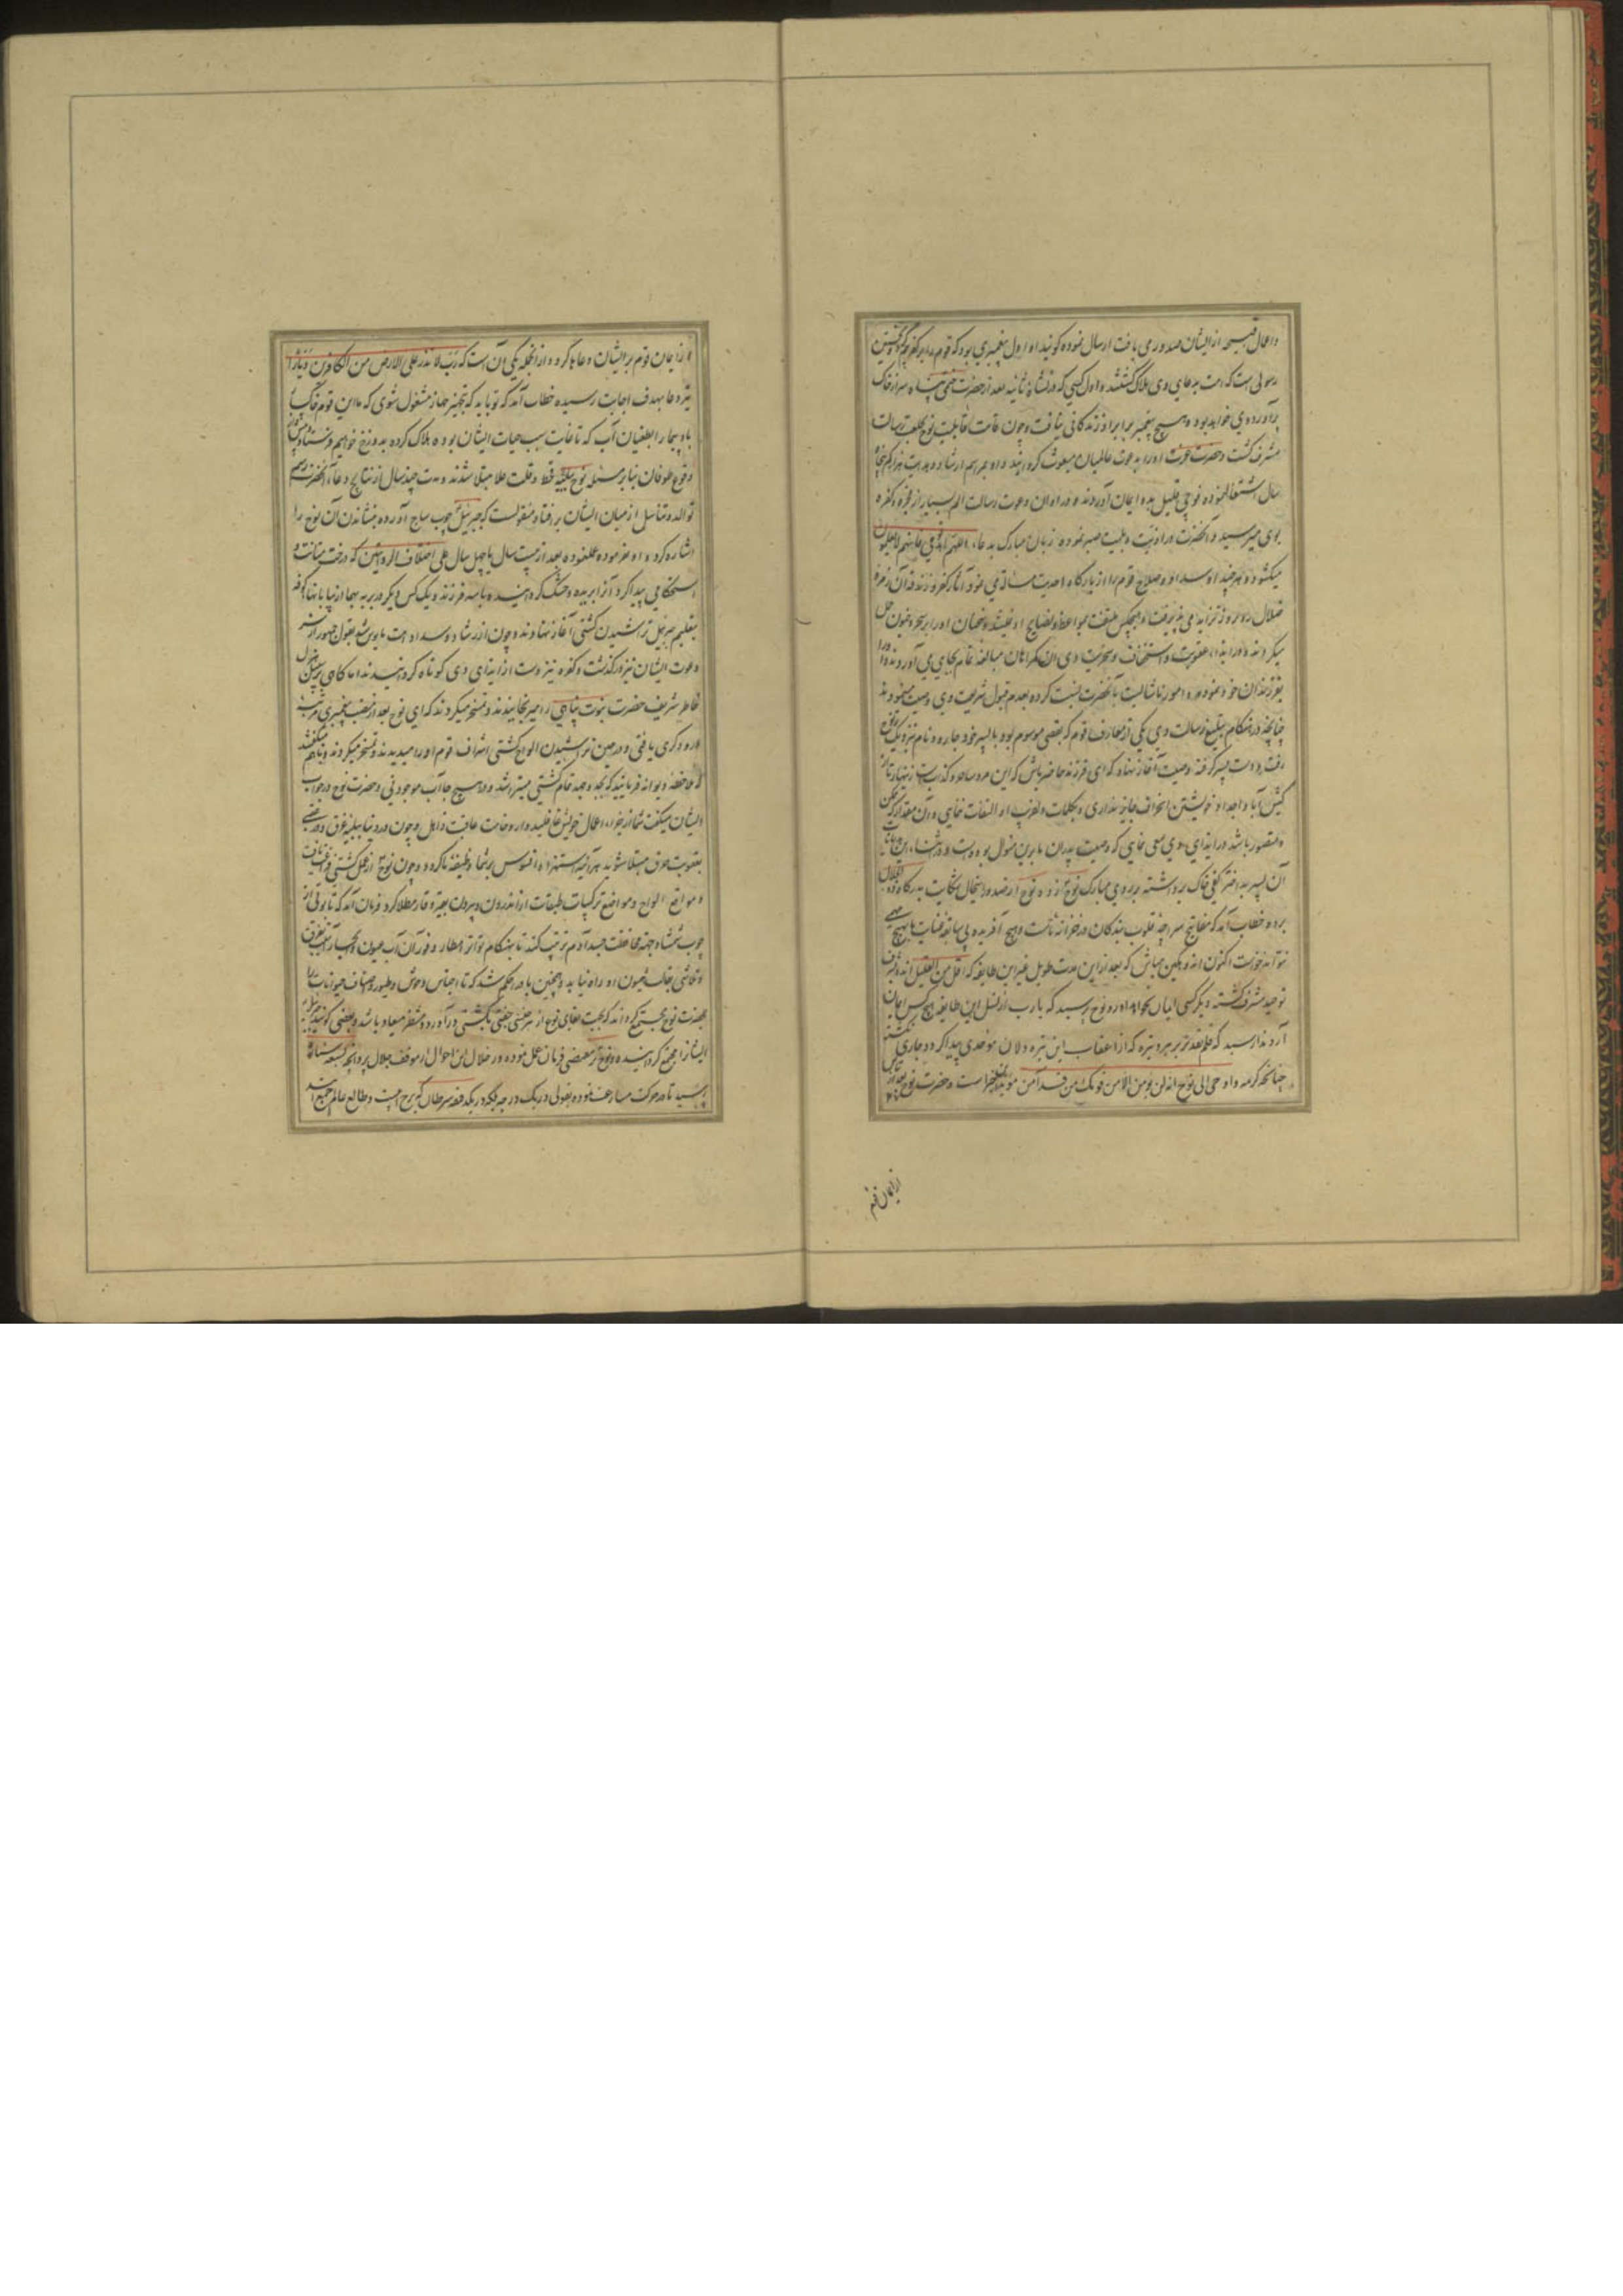 و اعمال قبیحه از ایشان صدور می یافت ارسال نموده گویند او اول پیغمبری بود که قوم را بر کفر
رسولی است که امت بدعای وی هلاک گشتند و اول کسی که در نشاه ثانیه بعد از حضرت ختمی پناه سر از خاک
برآورد وی خواهد بود و هیچ پیغمبر برابر او زندگانی نیافت و چون قامت قابلیت نوح بخلعت رسالت
مشرف گشت و حضرت عزت او را بدعوت عالمیان مبعوث گردانید و او بمراسم ارشاد و هدایت
سال اشتغال نموده فوجی قلیل بدو ایمان آوردند و در اوان دعوت رسالت الم بسیار از فجره و کفره
بوی میرسید و آنحضرت در اذیت و بلیت صبر نموده زبان مبارک بدعاء اللهم اهد قومی فانهم لا یعلمون
میگشود و هر چند او سداد و صلاح قوم را از بارگاه احدیت مسالت می نمود آثار کفر و زندقه آن زمره
ضلال روز بروز تزاید می پذیرفت و هیچکس ملتفت مواعظ و نصایح او نمیشد و سخنان او را بر سحر و جنون حمل
میکردند و در ایذاء و عقوبت و استخفاف و سخریت وی آن گمراهان مبالغه تمام بجای می آوردند
بفرزندان خود نموده امور ناشایست بآنحضرت نسبت کرده بعدم قبول شریعت وی وصیت مینمودند
چنانچه در هنگام تبلیغ رسالت وی یکی از معارف قوم که بقصی موسوم بود با پسر خود جاره نام نزدیک نوح
رفت و دست پسر گرفته وصیت آغاز نهاد که ای فرزند حاضر باش که این مرد ساحر و کذابست زنهار تا از
کیش آبا و اجداد خویشتن انحراف جایز نداری و بکلمات دلفریب او التفات ننمایی و آن مقدار که ممکن
و مقدور باشد در ایذای وی سعی نمایی که وصیت پدران ما برین منوال بوده است و در اثناء این
آن پسر بد اختر کفی خاک برداشته بر روی مبارک نوح زد و نوح از صدور اینحال شکایت بدرگاه ذو الجلال
برد و خطاب آمد که مفاتیح سراچهٔ قلوب بندگان در خزانه ماست و هیچ آفریده بی سابقه عنایت ما بهیچ
نتواند خورست اکنون اندوهگین مباش که بعد از این مدت طویل غیر این طایفه که اقل من القلیل اند بشرف
توحید مشرف گشته دیگر کسی ایمان نخواهد آورد و نوح پرسید که یا رب از نسل این طایفه هیچ کس ایمان
آرد ندا رسید که قلم تقدیر بر هر دو تیره که از اعقاب این تیره دلان موحدی پیدا گردد جاری نگشته
چنانکه کریمه و اوحی الی نوح انه لن یؤمن من قومک الا من قد آمن مؤید است و حضرت نوح
از ایمان قوم
از ایمان قوم بر ایشان دعاها کرد و از آنجمله یکی آن است که رب لا تذر علی الارض من الکافرین دیارا
تیر دعا بهدف اجابت رسیده خطاب آمد که تو باید که بتجهیز جهاز مشغول شوی که ما این قوم خاکسار
باد پیما را بطغیان آب که تا غایت سبب حیات ایشان بوده هلاک کرده بدوزخ خواهیم فرستاد
وقوع طوفان بنا بر مسئله نوح ببلیه قحط و قلت غلا مبتلا شدند و مدت چند سال از نتایج دعاء آنحضرت رسم
توالد و تناسل از میان ایشان بر افتاد و منقولست که جبرئیل چوب ساج آورده بنشاندن آن نوح را
اشاره کرد و او بفرموده عمل نموده بعد از بیست سال یا چهل سال علی اختلاف الروایتین که درخت متانت و
استحکامی پیدا کرد آنرا بریده و خشک گردانیده با سه فرزند و یک کس دیگر
بتعلیم جبرئیل تراشیدن کشتی آغاز نهادند و چون از رشاد و سداد امت مایوس شد بقول جمهور از سر
دعوت ایشان نیز درگذشت و کفره نیز دست از ایذای وی کوتاه گردانیدند اما گاهی بر سبیل هزل
خاطر شریف حضرت نبوت پناهی را میرنجانیدند و تمسخر میکردند که ای نوح بعد از منصب پیغمبری مرتبه
درودگری یافتی و در حین تراشیدن الواح کشتی اشراف قوم او را میدیدند و تمسخر میکردند و باهم میگفتند
که ملاحظه دیوانه فرمایید که بجد و جهد تمام کشتی میتراشد و در هیچ جا آب موجود نی و حضرت نوح در جواب
ایشان میگفت شما از جزاء اعمال خویش غافلید و از وخامت عاقبت ذاهل و چون در دنیا ببلیه غرق و در عقبی
بعقوبت حرق مبتلا شوید هرآینه استهزا و افسوس بر شما وظیفه ما گردد و چون نوح از عمل کشتی فراغت یافت
و مواضع الواح و مواضع ترکیبات طبقات او از اندرون و بیرون بقیر و قار مطلا کرد فرمان آمد که تابوتی از
چوب شمشاد جهة محافظت جسد آدم ترتیب کنند تا بهنگام تواتر امطار و فوران آب عیون و بحار آسیب غرق
و تلاشی بجانب همیون او راه نیابد و همچنین باد را حکم شد که تا اجناس وحوش و طیور و اصناف حیوانات را
بحضرت نوح مجتمع گرداند که بجهت بقای نوع از هر جنسی جفتی بکشتی درآورده منتظر میعاد باشد و بعضی گویند جبرئیل
ایشانرا مجتمع گردانیده و نوح بر مقتضی فرمان عمل نموده در خلال این احوال از موقف جلال پروانچه بسبعه سیاره
رسید تا در حرکت مسارعت نموده بقولی در یک درجه و یک دقیقه سرطان که برج آبیست و طالع عالم مجتمع شدند